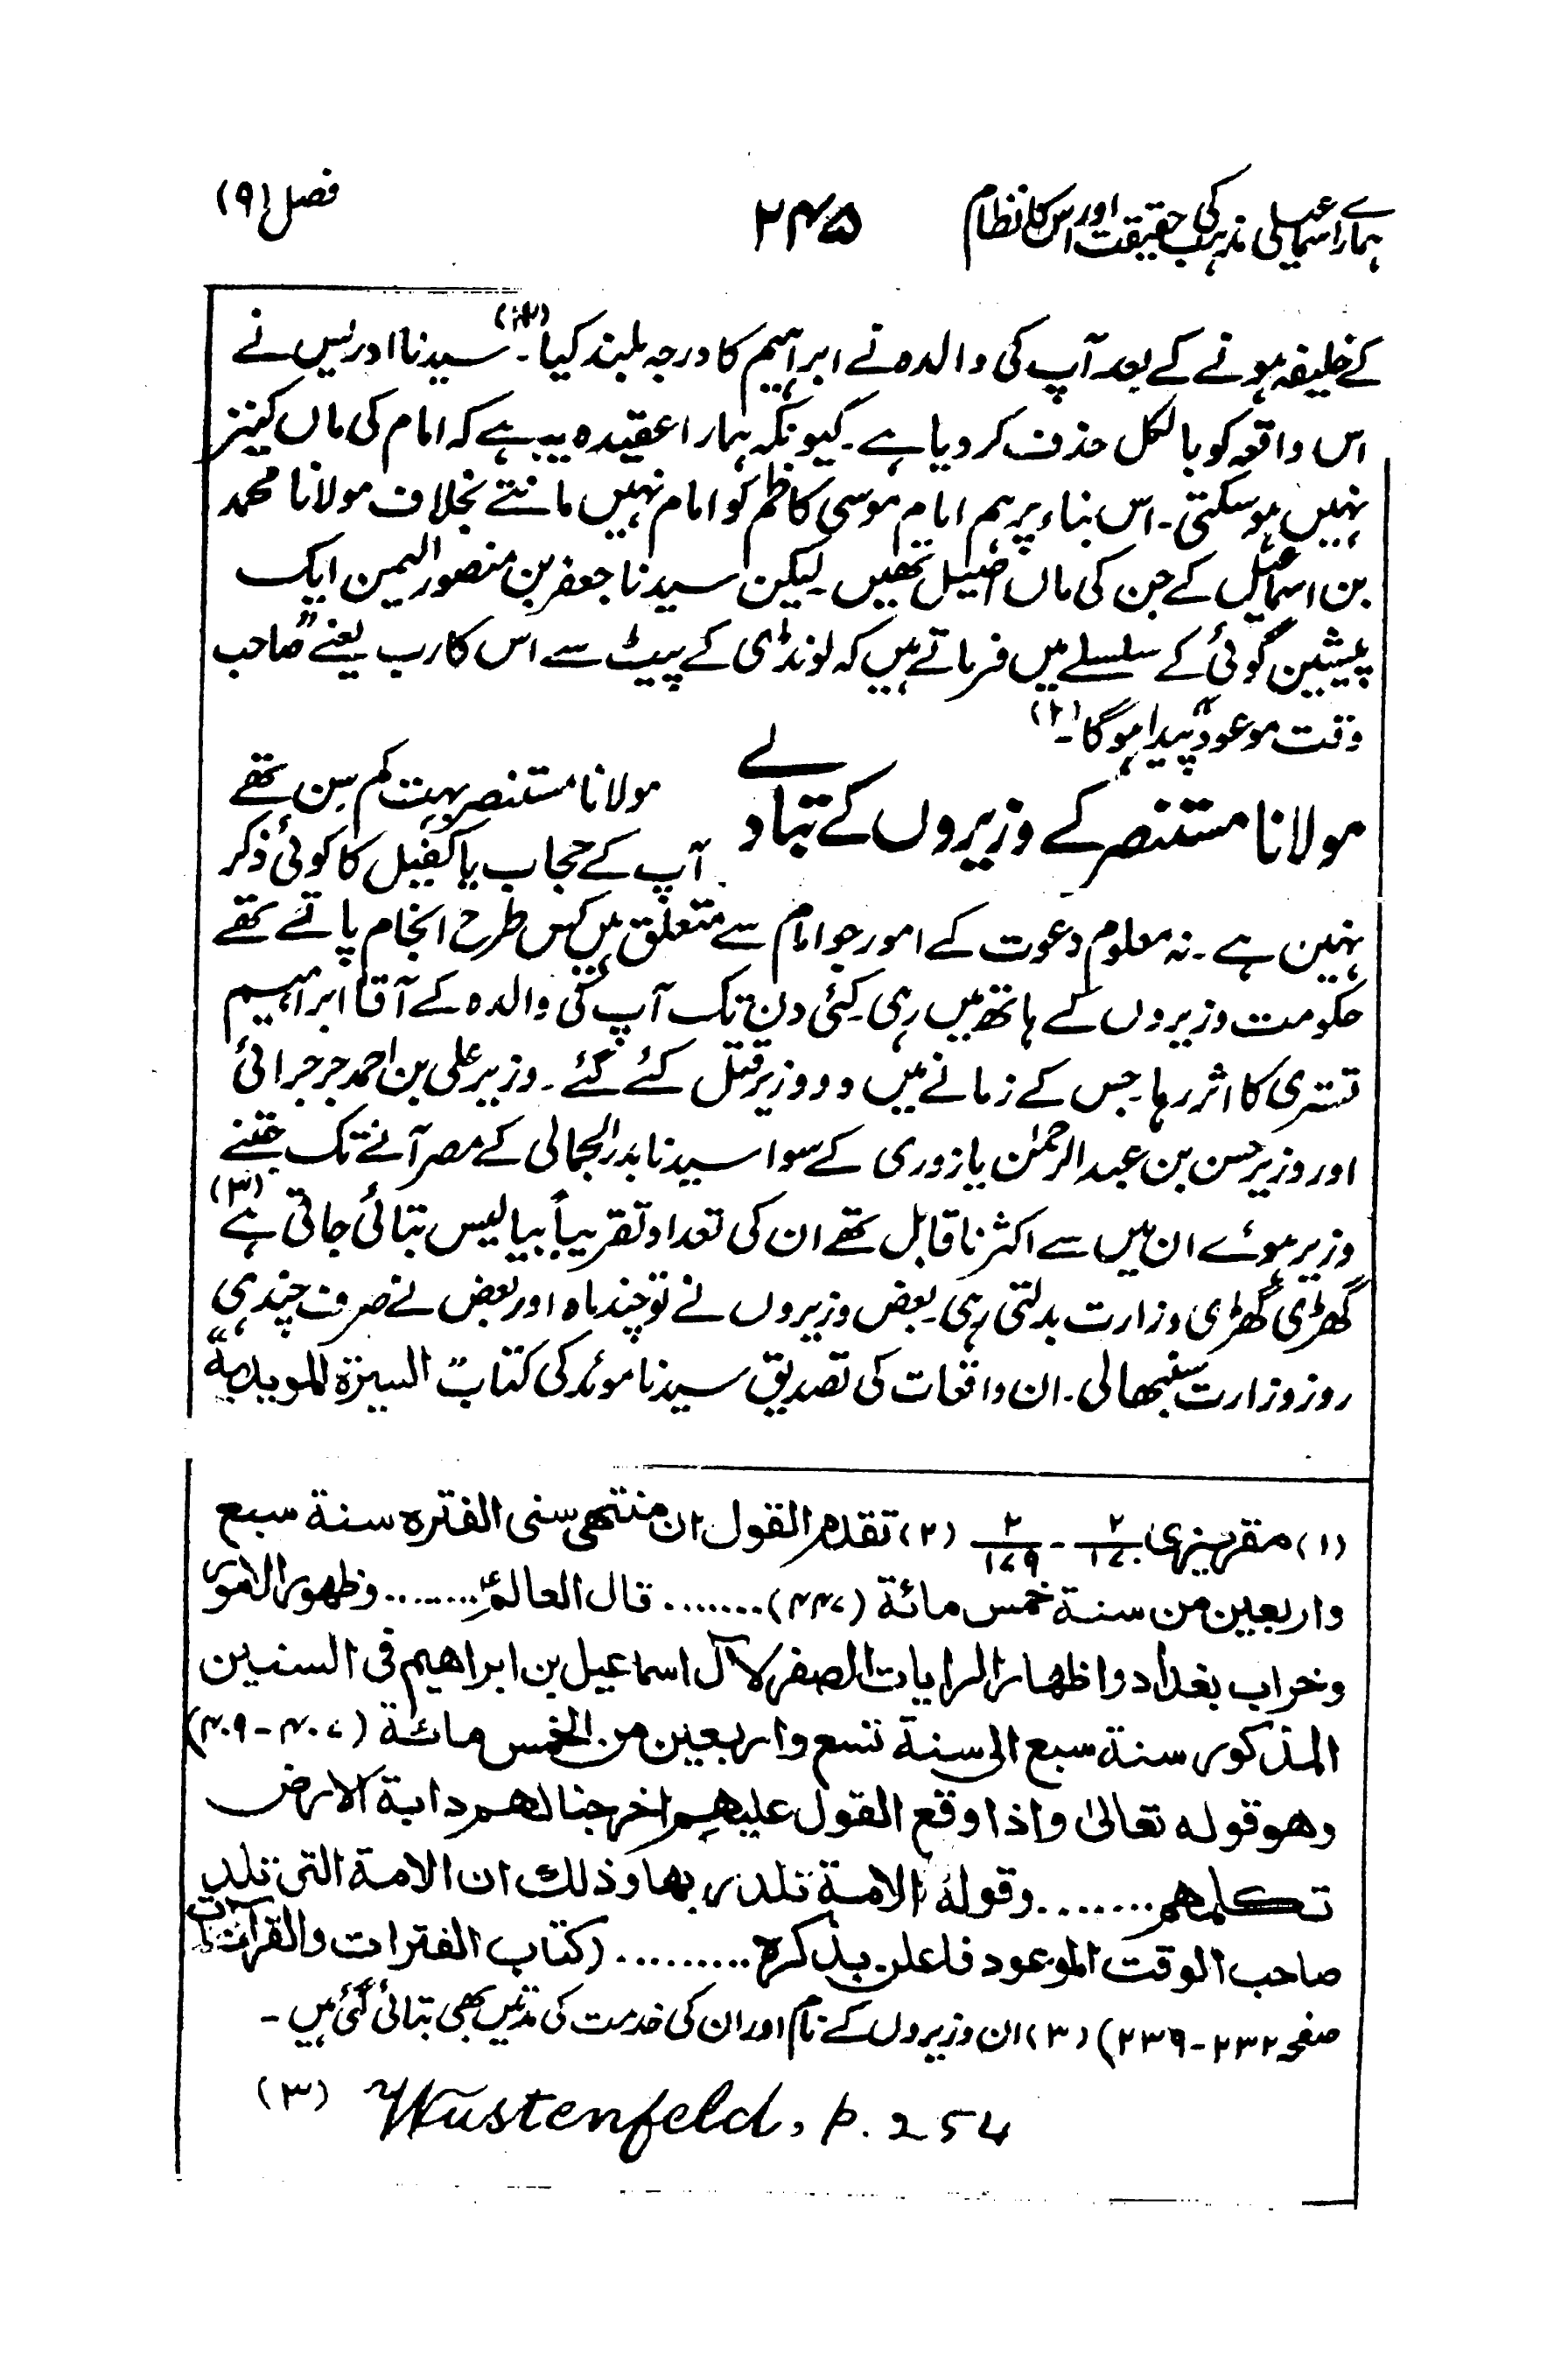 ہمارے اسماعیلی مذہب کی حقیقت اور اس کا نظام ۲۴۵ فصل (۹)
کے خلیفہ ہونے کے بعد آپ کی والدہ نے ابراہیم کا درجہ بلند کیا۔ سیدنا ادریس نے
اس واقعہ کو بالکل حذف کر دیا ہے۔ کیونکہ ہمارا عقیدہ یہ ہے کہ امام کی ماں کنیز
نہیں ہو سکتی۔ اس بناء پر ہم امام موسی کاظم کو امام نہیں مانتے بخلاف مولانا محمد
بن اسماعیل کے جن کی ماں اصیل تھیں۔ لیکن سیدنا جعفر بن منصور الیمن ایک
پیشین گوئی کے سلسلے میں فرماتے ہیں کہ لونڈی کے پیٹ سے اس کا رب یعنے "صاحب
وقت موعود" پیدا ہوگا۔ (۲)
مولانا مستنصر کے وزیروں کے تبادلے
مولانا مستنصر بہت کم سِن تھے
آپ کے حجاب یا کفیل کا کوئی ذکر
نہیں ہے۔ نہ معلوم دعوت کے امور جو امام سے متعلق ہیں کس طرح انجام پاتے تھے
حکومت وزیروں کے ہاتھ میں رہی۔ کئی دن تک آپ کی والدہ کے آقا ابراہیم
تستری کا اثر رہا۔ جس کے زمانے میں دو وزیر قتل کئے گئے۔ وزیر علی بن احمد جرجرائی
اور وزیر حسن بن عبد الرحمٰن یازوری کے سوا سیدنا بدر الجمالی کے مصر آنے تک جتنے
وزیر ہوئے ان میں سے اکثر ناقابل تھے ان کی تعداد تقریباً بیالیس بتائی جاتی ہے (۳)
گھڑی گھڑی وزارت بدلتی رہی۔ بعض وزیروں نے تو چند ماہ اور بعض نے صرف چند ہی
روز وزارت سنبھالی۔ ان واقعات کی تصدیق سیدنا موئد کی کتاب "السیرۃ المویدیۃ"
(۱) مقریزی ۲/۱۷۰ - ۲/۱۷۹ (۲) تقدم القول ان منتهی سنی الفترہ سنة سبع
واربعین من سنة خمس مائة (۴۴۷)....... قال العالمؑ........ وظهور الامور
وخراب بغداد واظهار الرایات الصفر لآل اسماعیل بن ابراهیم فی السنین
المذکور سنة سبع الی سنة تسع واربعین من الخمس مائة (۴۰۷-۴۰۹)
وهو قوله تعالیٰ واذا وقع القول علیهم اخرجنا لهم دابة الارض
تکلمهم........ وقوله الامة تلد ربها وذلك ان الامة التی تلد
صاحب الوقت الموعود فاعلن بذکره.......... (کتاب الفترات والقرآنات
صفحہ ۲۳۲-۲۳۹) (۳) ان وزیروں کے نام اور ان کی خدمت کی مدتیں بھی بتائی گئی ہیں۔
(۳) Wüstenfeld, p. 254